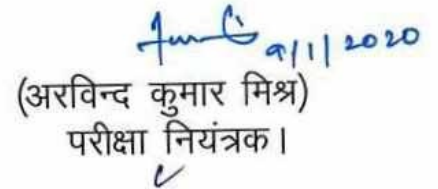 9/1/2020
(अरविन्द कुमार मिश्र)
परीक्षा नियंत्रक।